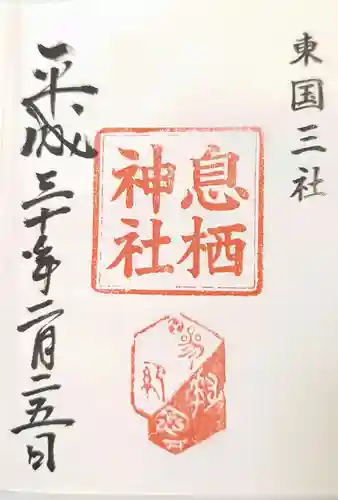 東国三社
息栖
神社
平成三十年二月二五日